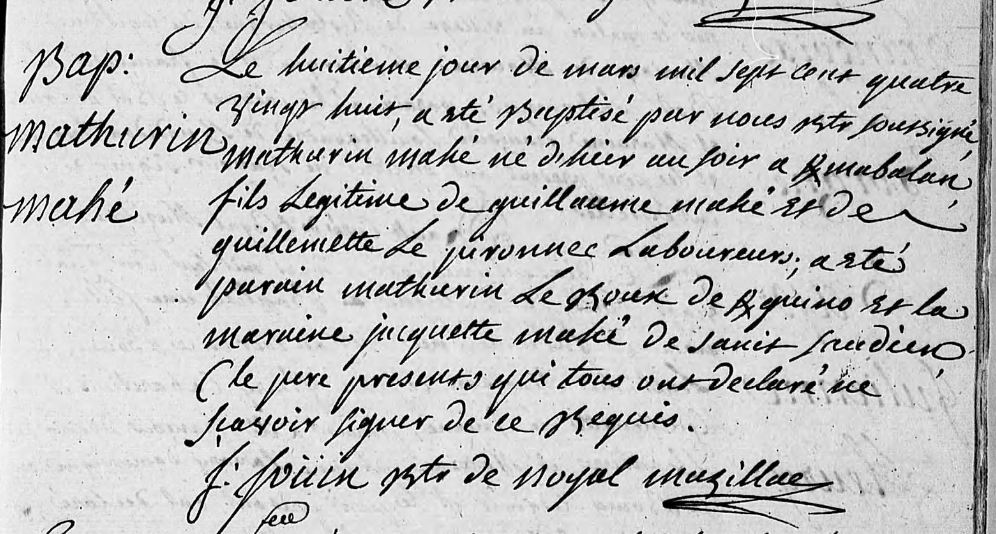 Bap:
Mathurin
mahé
Le huitieme jour de mars mil sept cent quatre
vingt huit, a eté Baptisé par nous Rtr soussigné
mathurin mahé né d'hier au soir a Kmabalan,
fils Legitime de guillaume mahé Et de
guillemette Le pironnec Laboureurs, a eté
parain mathurin Le Roux de Kguino Et la
maraine jacquette mahé de sanit
( le pere presents qui tous ont declaré ne
scavoir signer de ce Requis.
f: Rtr de Noyal muzillac